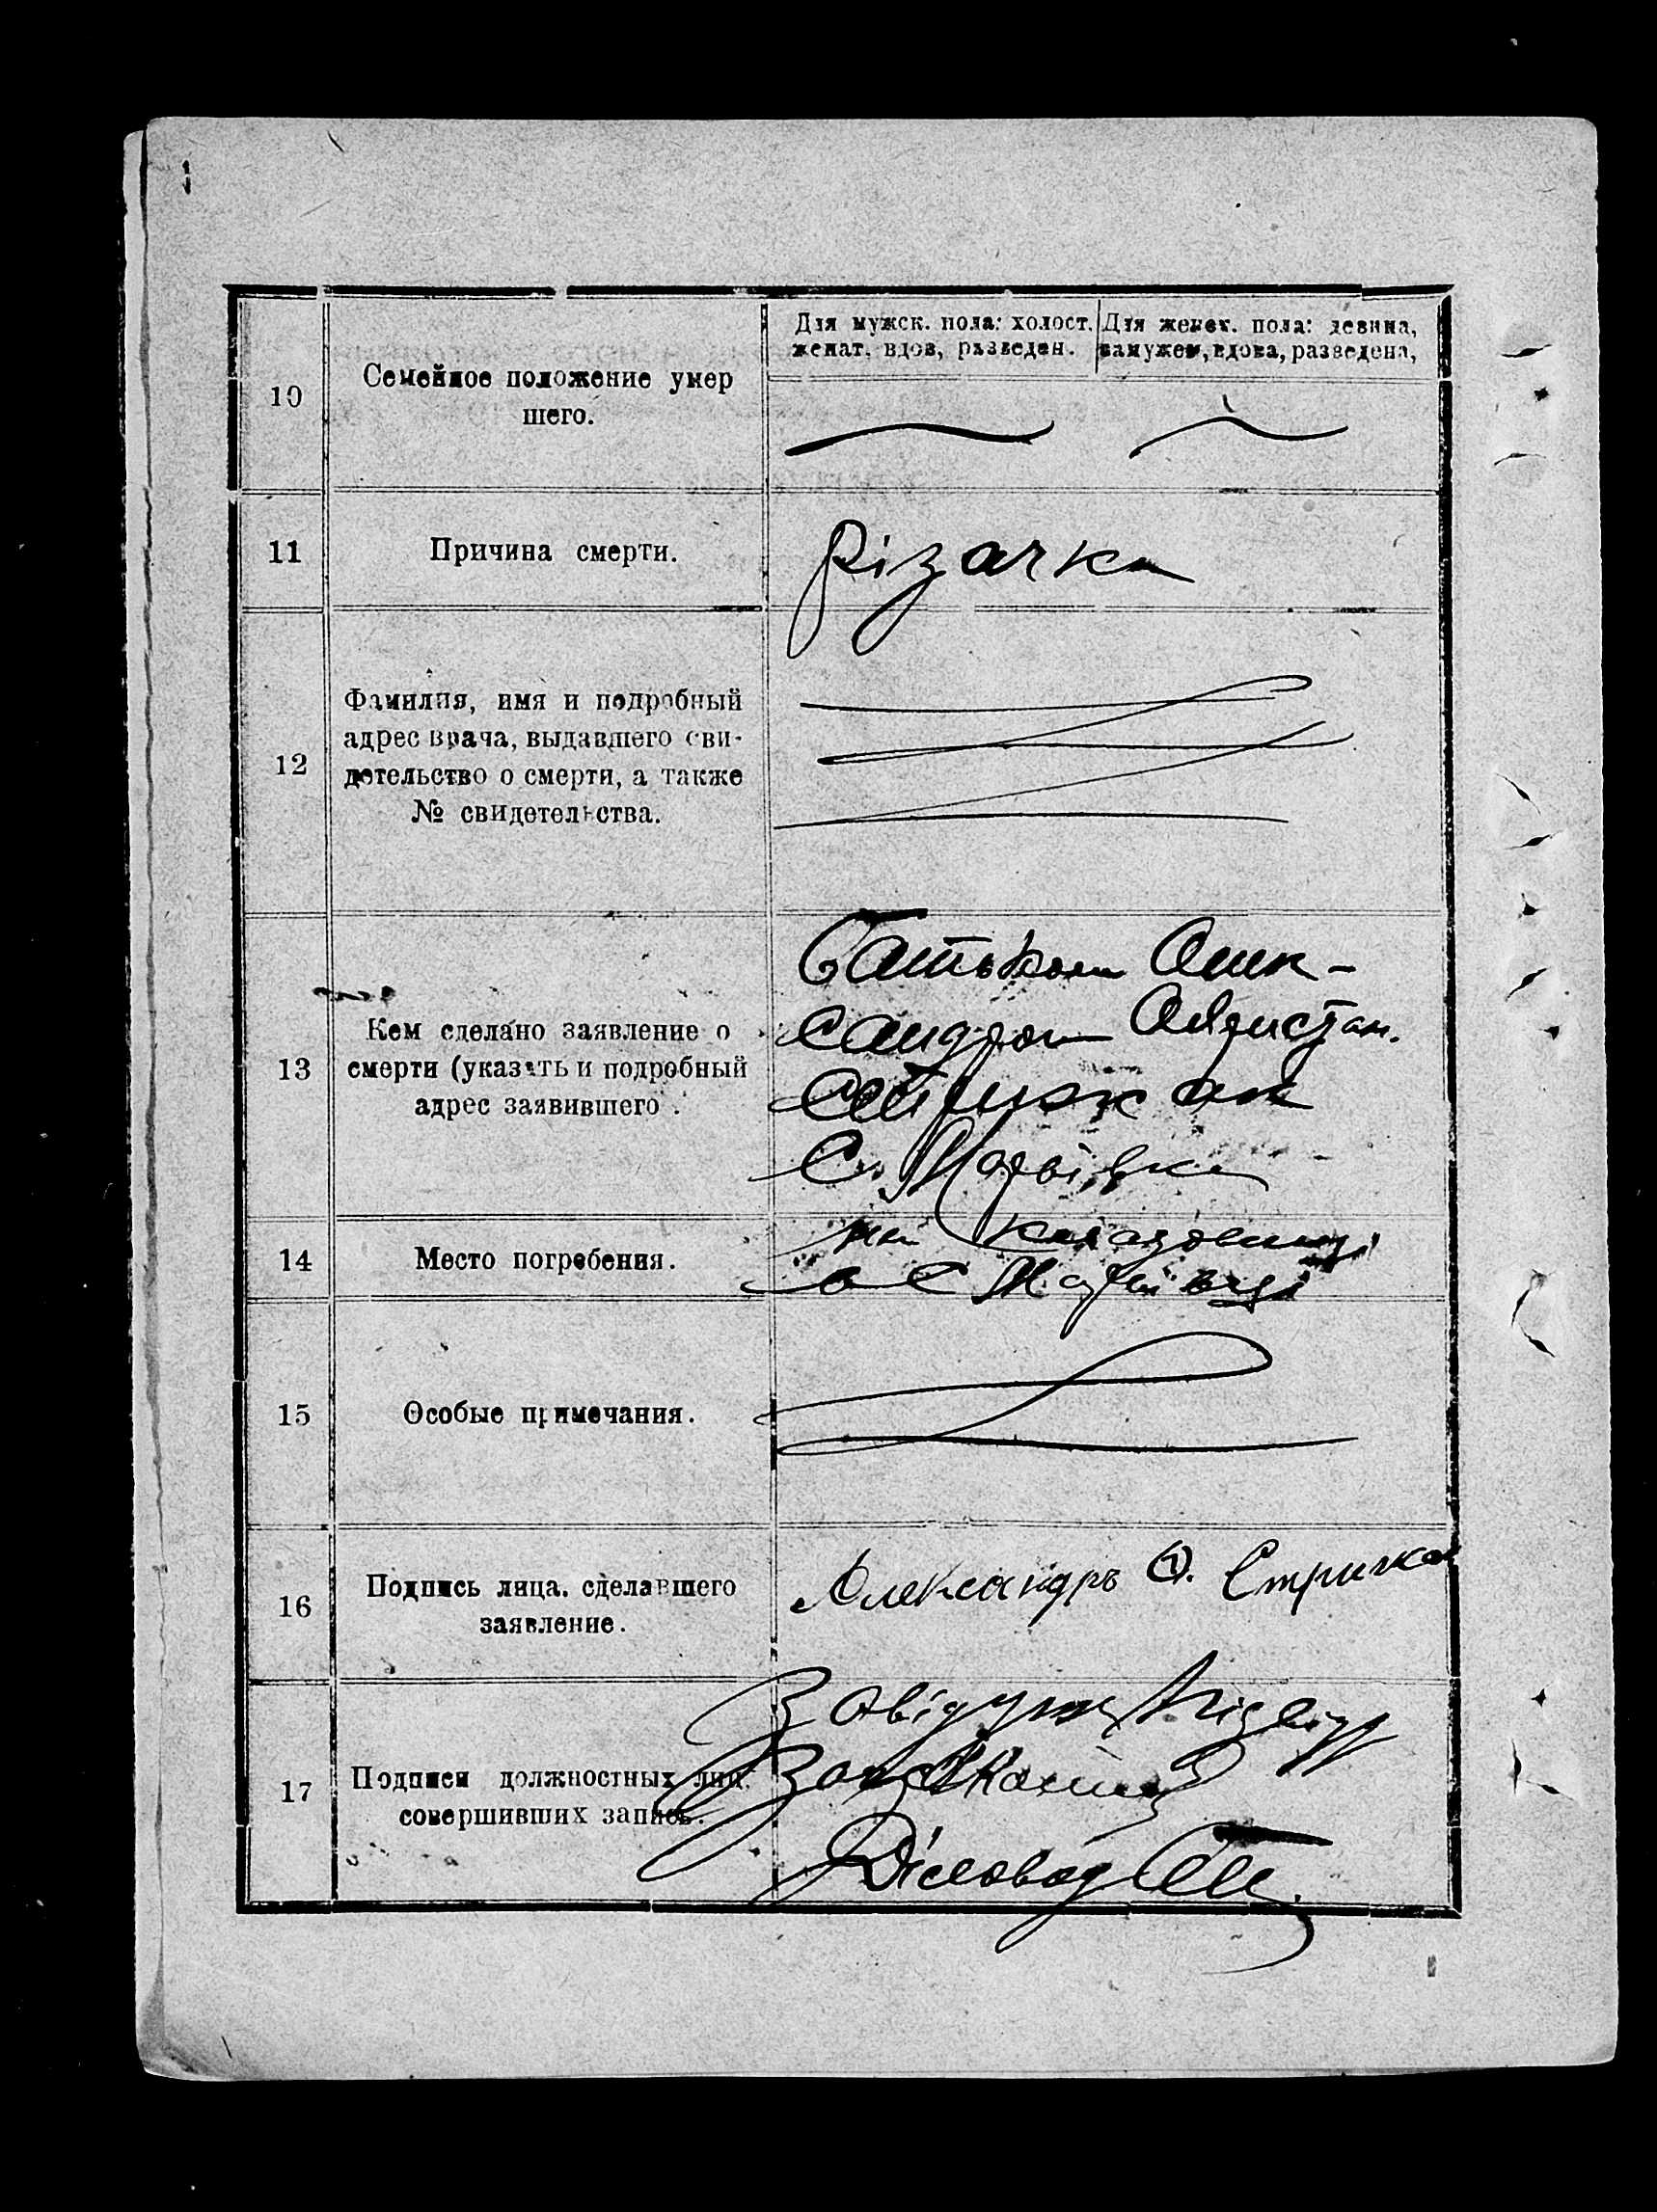 Для мужск. пола: холост. женат, вдов, разведен.
Для женск. пола: девица, замужем, вдова, разведена,
10
Семейное положение умер
шего.
11
Причина смерти.
Різачка
12
Фамилия, имя и подробный
адрес врача, выдавшего сви-
детельство о смерти, а также
№ свидетельства.
13
Кем сделано заявление о
смерти (указать и подробный
адрес заявившего).
батьком Олек-
сандром
Стрижак
с.
14
Место погребения.
на кладовищі
в с
15
Особые примечания.
16
Подпись лица, сделавшего
заявление.
Александръ О. Стрижак
17
Подписи должностных лиц,
совершивших запись.
Завідуюч
Діловод